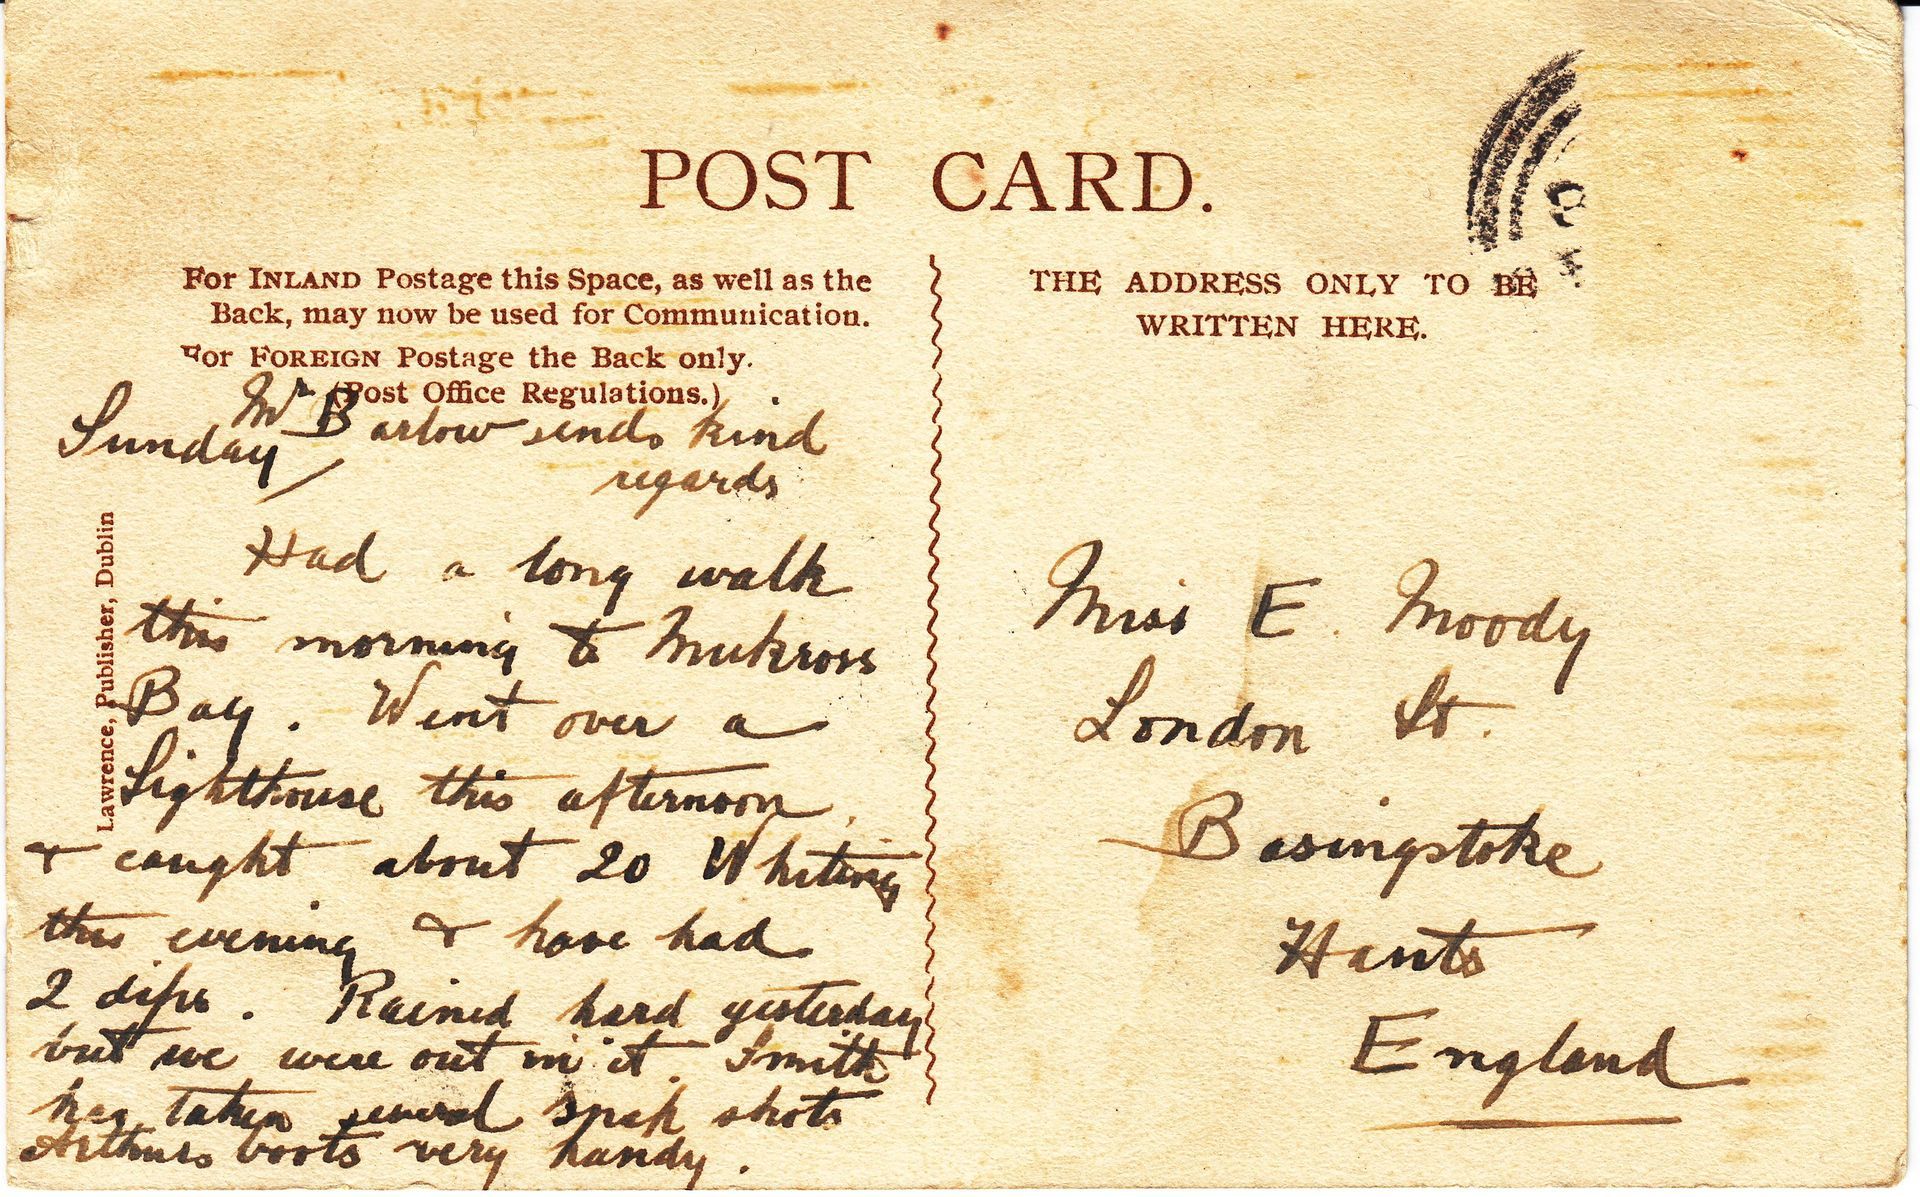 POST CARD.
For INLAND Postage this Space, as well as the
Back, may now be used for Communication.
For FOREIGN Postage the Back only.
(Post Office Regulations.)
THE ADDRESS ONLY TO BE
WRITTEN HERE.
Mr Barlow sends kind
regards
Sunday/
Had a long walk
this morning to Mukross
Bay. Went over a
Lighthouse this afternoon,
& caught about 20 Whiting
this evening & have had
2 dips. Rained hard yesterday
but we were out in it. Smith
has taken several snap shots
Arthurs boots very handy.
Lawrence, Publisher, Dublin
Miss E. Moody
London St.
Basingstoke
Hants
England